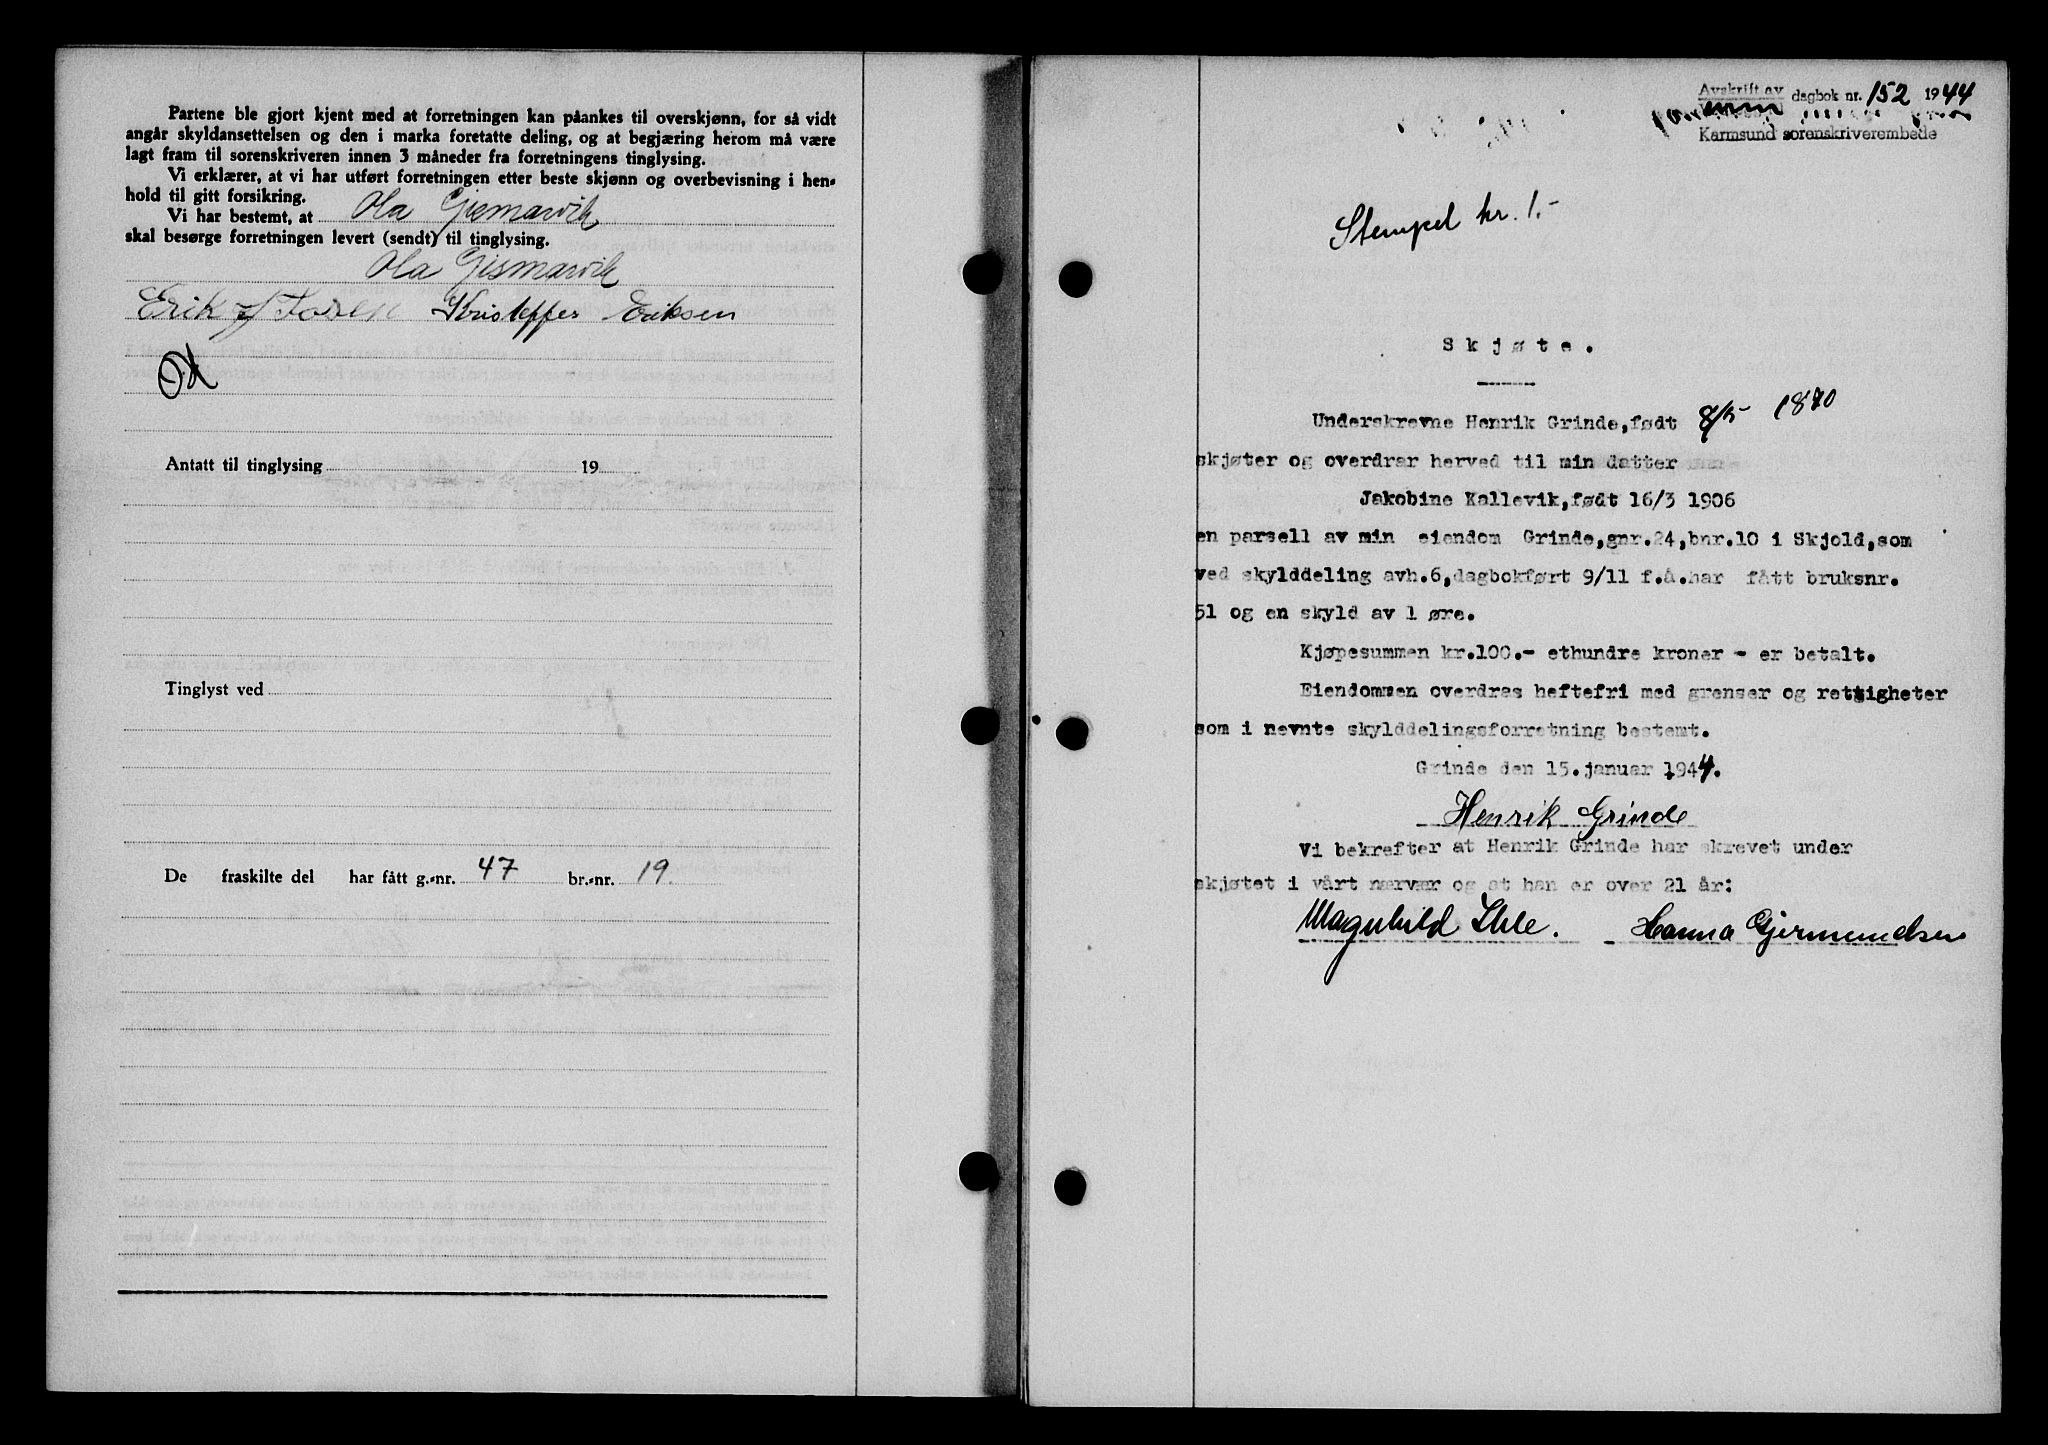 Partene ble gjort kjent med at forretningen kan påankes til overskjønn, for så vidt
angår skyldansettelsen og den i marka foretatte deling, og at begjæring herom må være
lagt fram til sorenskriveren innen 3 måneder fra forretningens tinglysing.
Vi erklærer, at vi har utført forretningen etter beste skjønn og overbevisning i hen-
hold til gitt forsikring.
Vi har bestemt, at Ola Gismarvik
skal besørge forretningen levert (sendt) til tinglysing.
Ola Gismarvik
Erik Kristoffer Eriksen
Antatt til tinglysing 19
Tinglyst ved
De fraskilte del har fått g.-nr. 47 br.-nr. 19.
Avskrift av dagbok nr. 152 1944
Karmsund sorenskriverembede
Stempel kr. 1.-
Skjøte.
Underskrevne Henrik Grinde, født 8/5 1870
skjøter og overdrar herved til min datter
Jakobine Kallevik, født 16/3 1906
en parsell av min eiendom Grinde, gnr.24, bnr.10 i Skjold, som
ved skylddeling avh.6, dagbokført 9/11 f.å.har fått bruksnr.
51 og en skyld av 1 øre.
Kjøpesummen kr.100.- ethundre kroner - er betalt.
Eiendommen overdras heftefri med grenser og rettigheter
som i nevnte skylddelingsforretning bestemt.
Grinde den 15. januar 1944.
Henrik Grinde
Vi bekrefter at Henrik Grinde har skrevet under
skjøtet i vårt nærvær og at han er over 21 år:
Magnhild Hanna Gjermundsen